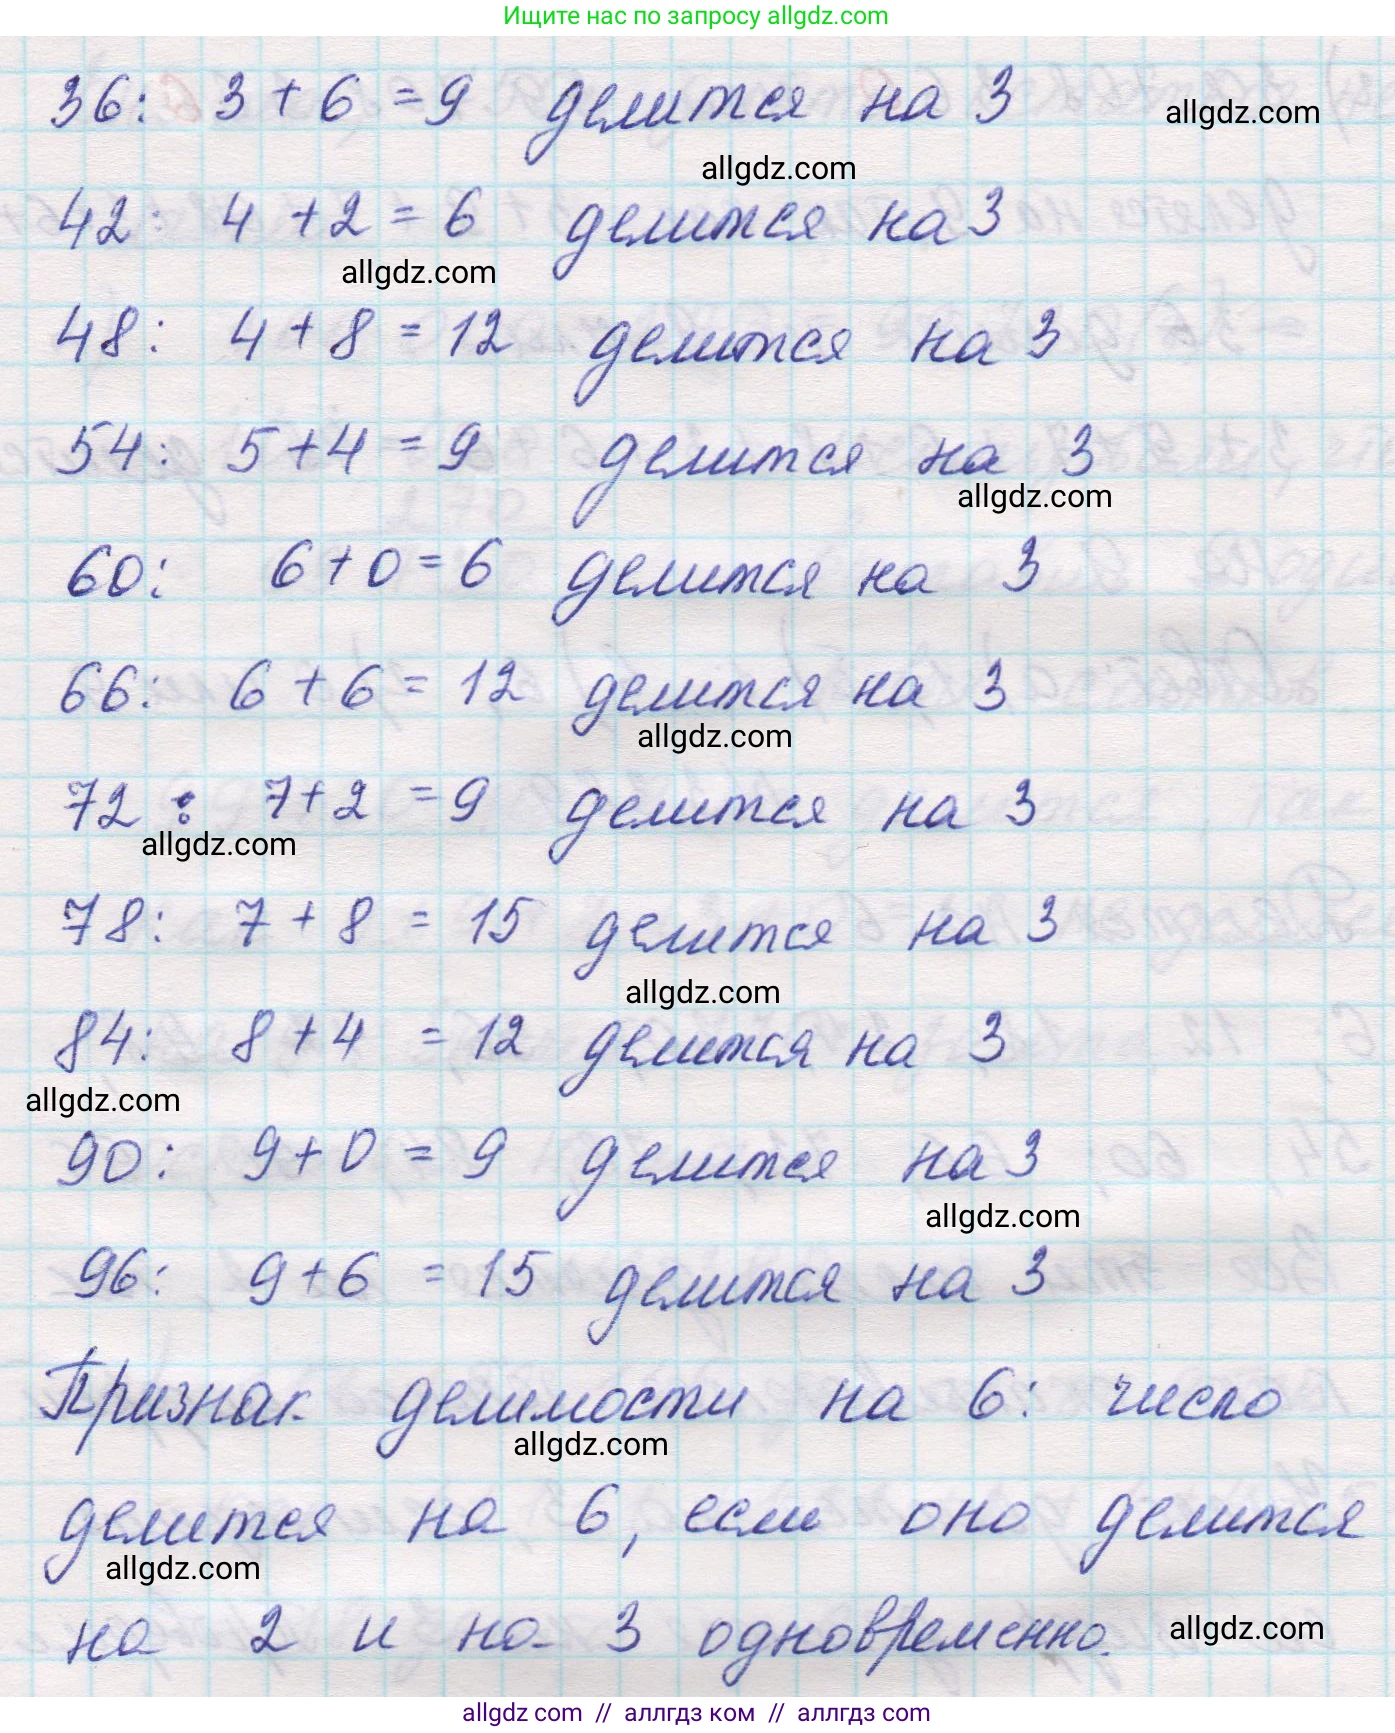 Ищите нас по запросу allgdz.com
36: 3 + 6 = 9 делится на 3
allgdz.com
allgdz.com
42: 4 + 2 = 6 делится на 3
allgdz.com
48: 4 + 8 = 12 делится на 3
54: 5 + 4 = 9 делится на 3
allgdz.com
60: 6 + 0 = 6 делится на 3
66: 6 + 6 = 12 делится на 3
allgdz.com
72 : 7 + 2 = 9 делится на 3
allgdz.com
78: 7 + 8 = 15 делится на 3
allgdz.com
84: 8 + 4 = 12 делится на 3
allgdz.com
90: 9 + 0 = 9 делится на 3
allgdz.com
96: 9 + 6 = 15 делится на 3
Признак делимости на 6: число
allgdz.com
делится на 6, если оно делится
allgdz.com
на 2 и на 3 одновременно.
allgdz.com
allgdz com // аллгдз ком // аллгдз com